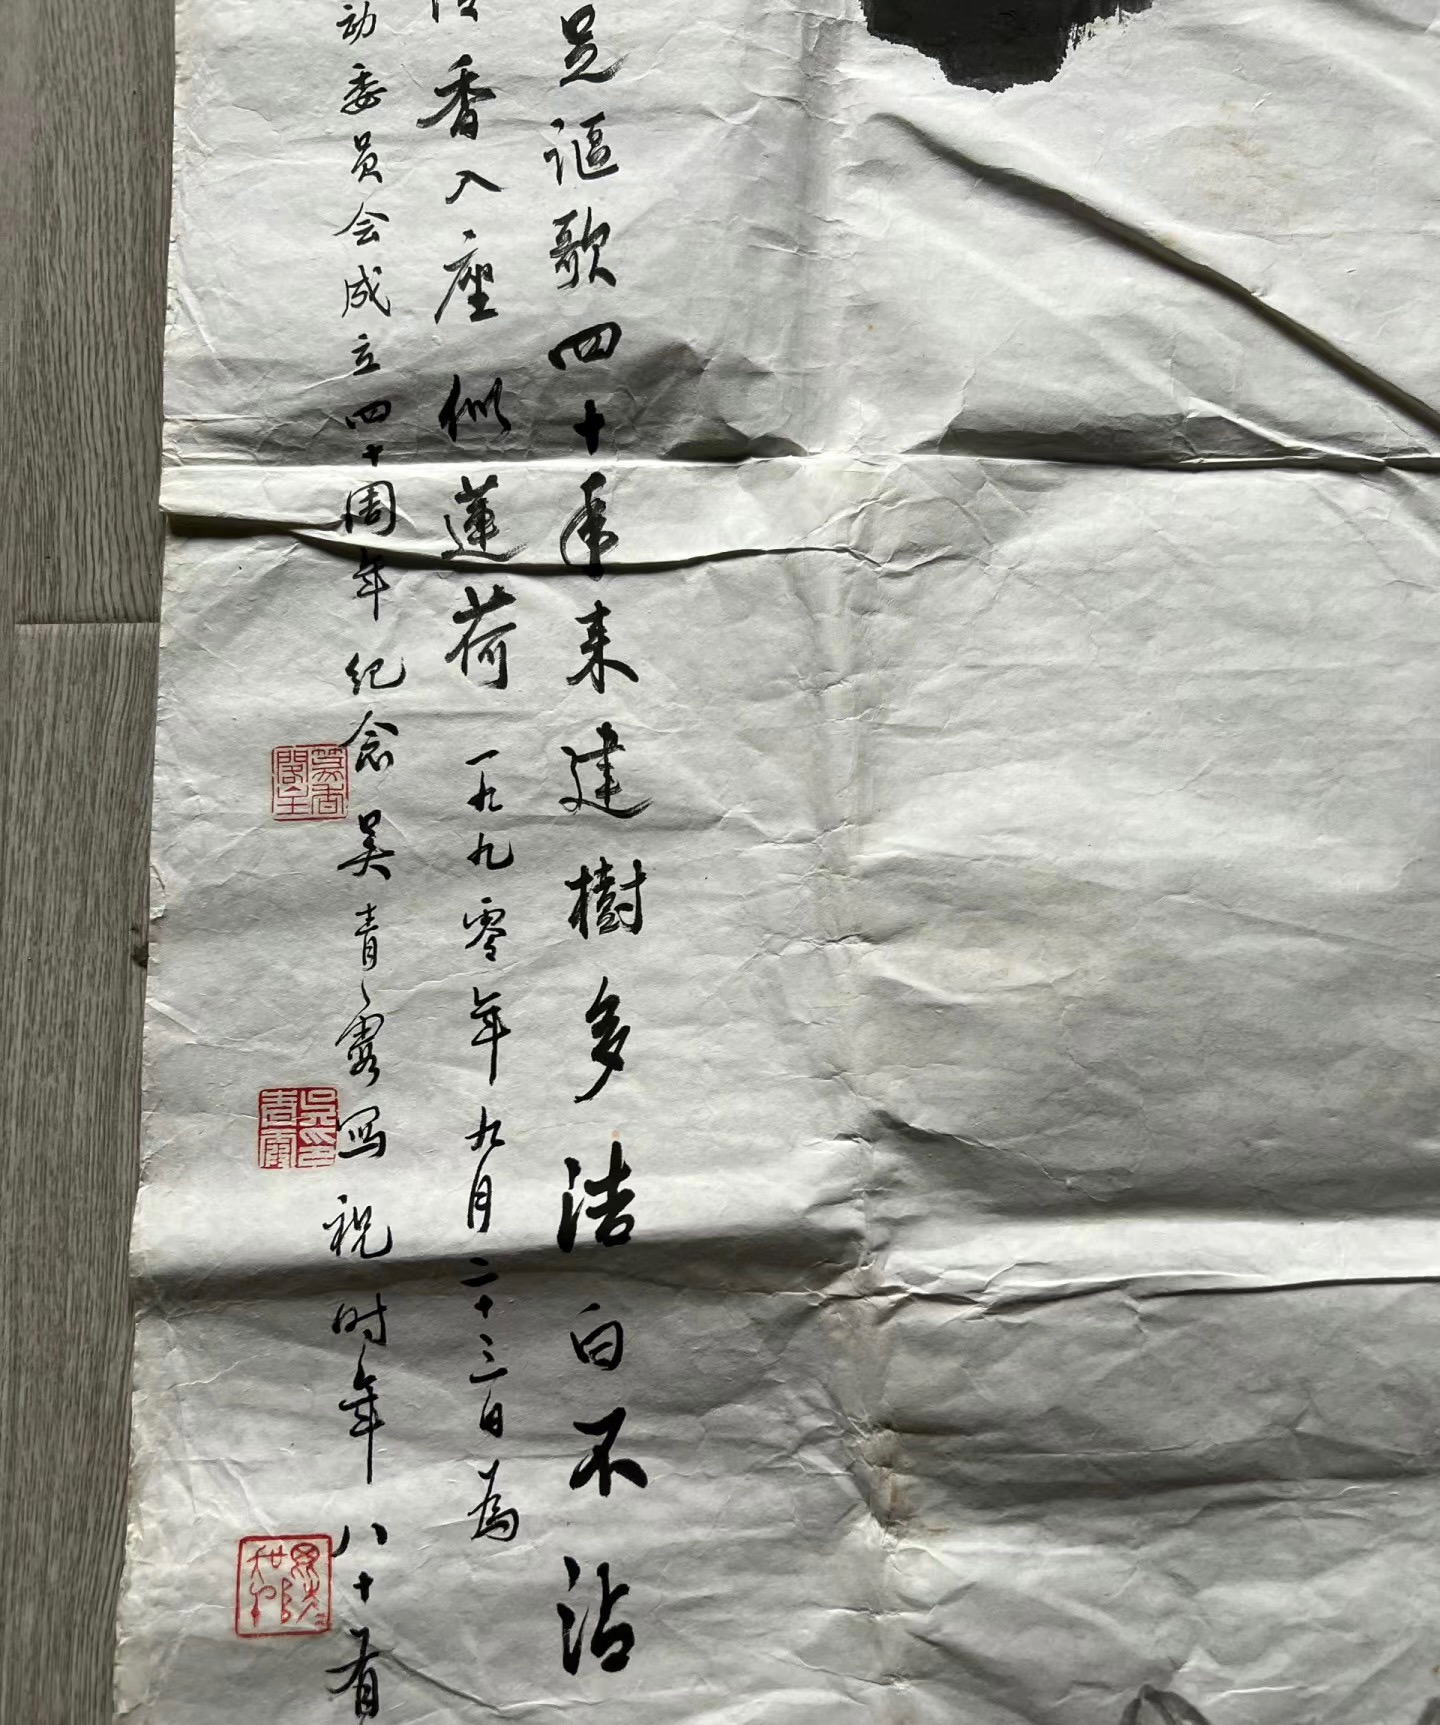 足讴歌四十年来建樹多洁白不沾
香入座似蓮荷 一九九零年九月二十三日為
动委员会成立四十周年纪念 吴青霞写祝时年八十有
篆香閣主
吴青霞印